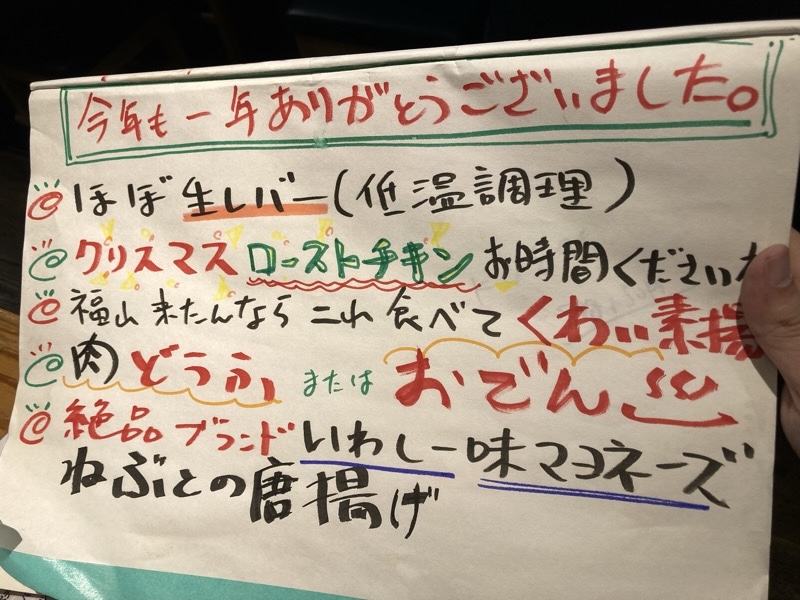 今年も一年ありがとうございました。
@ほぼ生レバー(低温調理)
@クリスマスローストチキン お時間ください
@福山来たんなら これ食べて くわい素揚
@肉どうふ または おでん
@絶品ブランドいわし一味マヨネーズ
ねぶとの唐揚げ